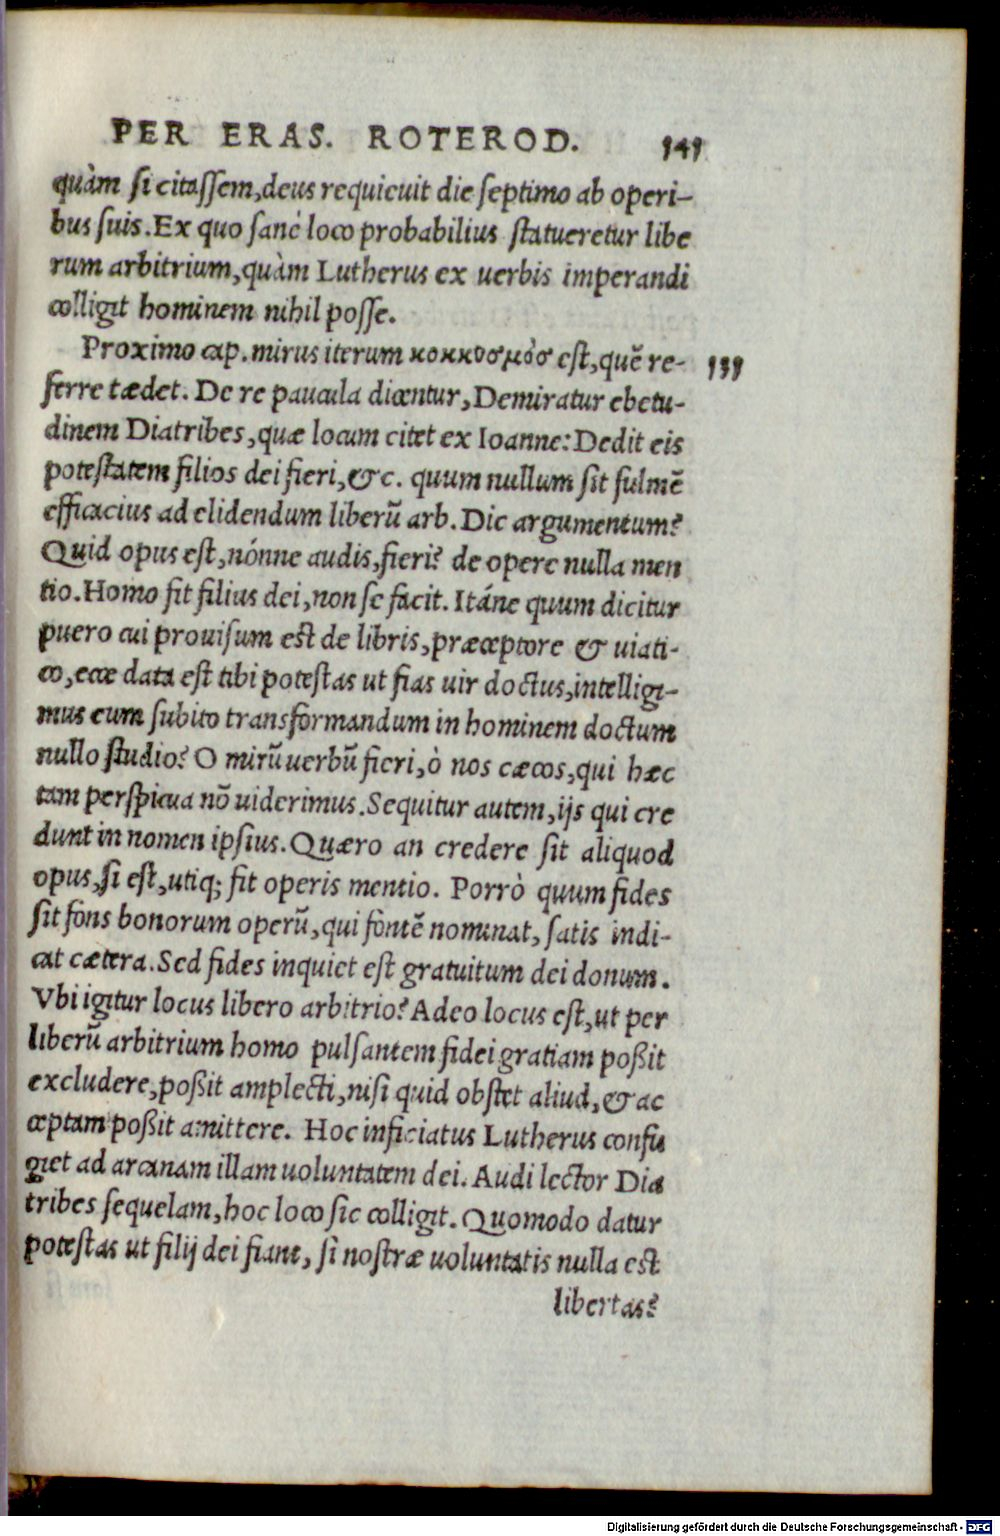 PER ERAS. ROTEROD. 141
quàm ſi citaſſem,deus requieuit die ſeptimo ab operi-
bus ſuis.Ex quo ſanè loco probabilius ſtatueretur libe
rum arbitrium,quàm Lutherus ex uerbis imperandi
colligit hominem nihil poſſe.
Proximo cap.mirus iterum κοκκυσμὸσ eſt,quẽ re- 139
ferre tædet. De re paucula dicentur,Demiratur ebetu-
dinem Diatribes,quæ locum citet ex Ioanne:Dedit eis
poteſtatem filios dei fieri,&c. quum nullum ſit fulmẽ
efficacius ad elidendum liberũ arb.Dic argumentum?
Quid opus eſt,nónne audis,fieri? de opere nulla men
tio.Homo fit filius dei,non ſe facit.Itáne quum dicitur
puero cui prouiſum eſt de libris,præceptore & uiati-
co,ecce data eſt tibi poteſtas ut fias uir doctus,intelligi-
mus eum ſubito transformandum in hominem doctum
nullo ſtudio? O mirũ uerbũ fieri,ò nos cæcos,qui hæc
tam perſpicua nõ uiderimus.Sequitur autem,ijs qui cre
dunt in nomen ipſius.Quæro an credere ſit aliquod
opus,ſi eſt,utiq; fit operis mentio. Porrò quum fides
ſit fons bonorum operũ,qui fontẽ nominat,ſatis indi-
cat cætera.Sed fides inquiet eſt gratuitum dei donum.
Vbi igitur locus libero arbitrio? Adeo locus eſt,ut per
liberũ arbitrium homo pulſantem fidei gratiam poßit
excludere,poßit amplecti,niſi quid obſtet aliud,& ac
ceptam poßit amittere. Hoc inficiatus Lutherus confu
giet ad arcanam illam uoluntatem dei.Audi lector Dia
tribes ſequelam,hoc loco ſic colligit.Quomodo datur
poteſtas ut filij dei fiant, ſi noſtræ uoluntatis nulla eſt
libertas?
Digitalisierung gefördert durch die Deutsche Forschungsgemeinschaft - DFG